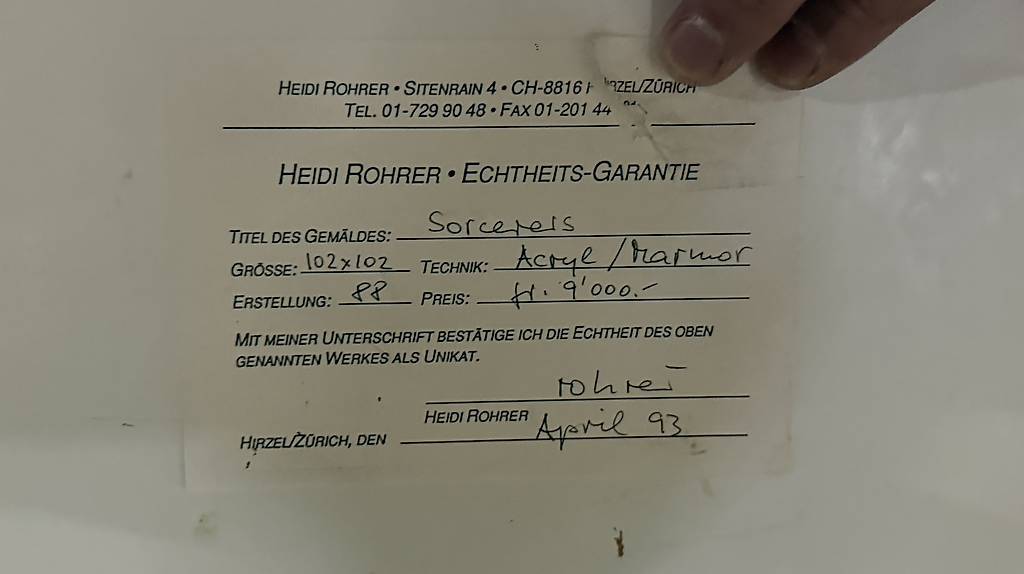 HEIDI ROHRER • SITENRAIN 4 • CH-8816 HIRZEL/ZÜRICH
TEL. 01-729 90 48 • FAX 01-201 44
HEIDI ROHRER • ECHTHEITS-GARANTIE
TITEL DES GEMÄLDES: Sorcereis
GRÖSSE: 102x102 TECHNIK: Acryl/Marmor
ERSTELLUNG: 88 PREIS: fr. 9'000.-
MIT MEINER UNTERSCHRIFT BESTÄTIGE ICH DIE ECHTHEIT DES OBEN
GENANNTEN WERKES ALS UNIKAT.
rohrer
HEIDI ROHRER
HIRZEL/ZÜRICH, DEN April 93